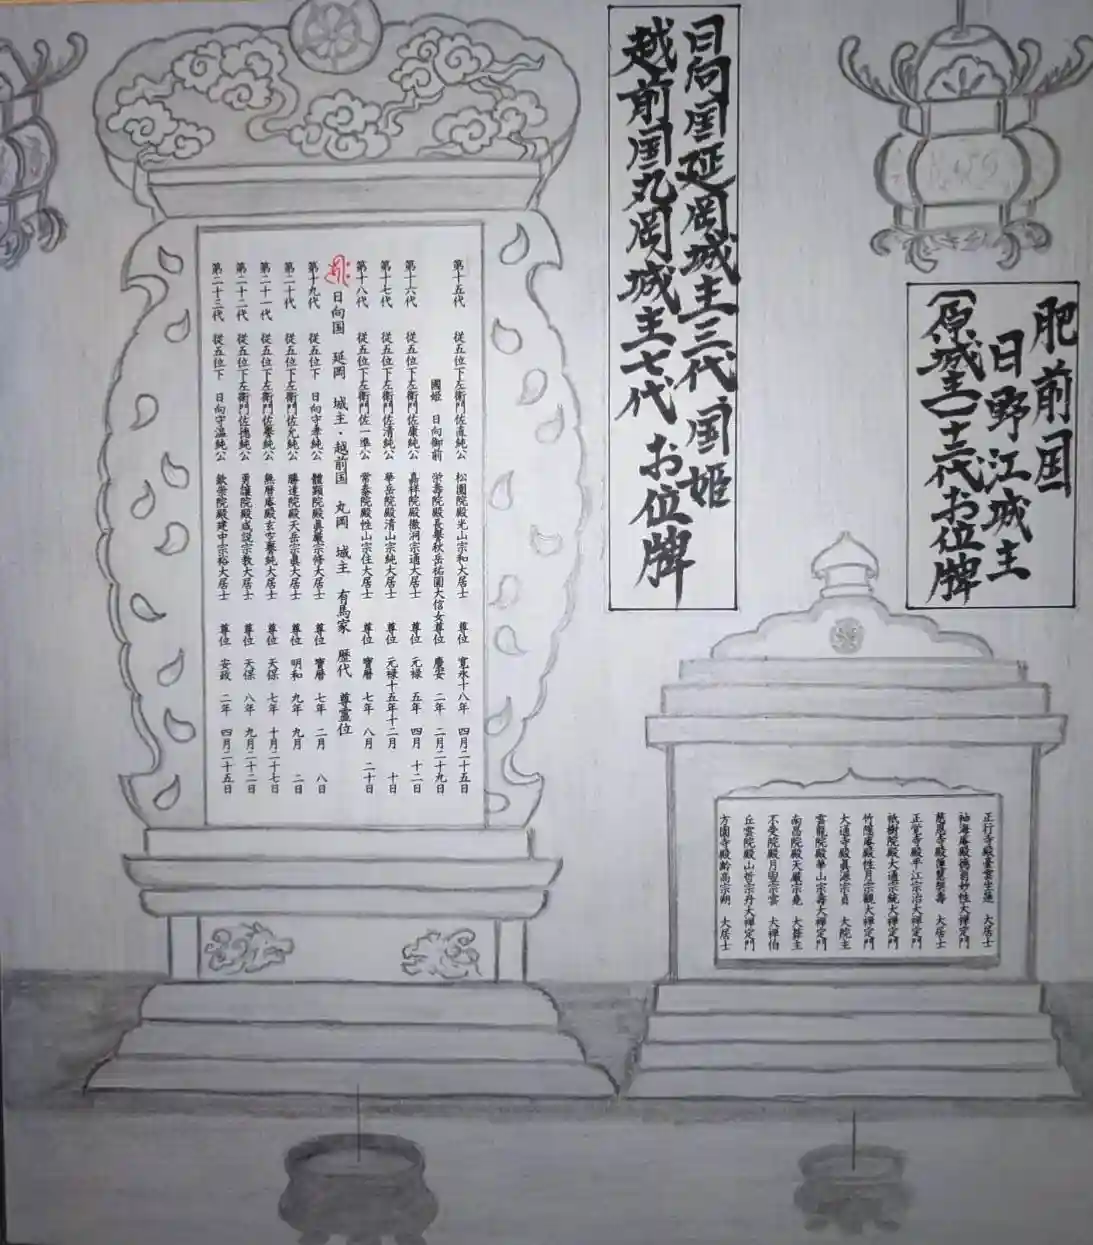 肥前国
日野江城主
(原城主)十三代お位牌
日向国延岡城主三代 国姫
越前国丸岡城主七代 お位牌
第十五代 従五位下左衛門佐直純公 松園院殿光山宗和大居士 尊位 寛永十八年 四月二十五日
國姫 日向御前 栄壽院殿長譽秋岳祐圓大信女尊位 慶安 二年 二月二十九日
第十六代 従五位下左衛門佐康純公 嘉祥院殿徹洞宗通大居士 尊位 元禄 五年 四月 十二日
第十七代 従五位下左衛門佐清純公 華岳院殿清山宗純大居士 尊位 元禄十五年十二月 十日
第十八代 従五位下左衛門佐一準公 常泰院殿性山宗住大居士 尊位 寶暦 七年 八月 二十日
日向国 延岡 城主・越前国 丸岡 城主 有馬家 歴代 尊霊位
第十九代 従五位下 日向守孝純公 體顕院殿眞巖宗修大居士 尊位 寶暦 七年 二月 八日
第二十代 従五位下左衛門佐允純公 勝達院殿天岳宗眞大居士 尊位 明和 九年 九月 二日
第二十一代 従五位下左衛門佐譽純公 無暦庵殿玄古譽純大居士 尊位 天保 七年 十月二十七日
第二十二代 従五位下左衛門佐徳純公 勇譲院殿成説宗教大居士 尊位 天保 八年 九月二十二日
第二十三代 従五位下 日向守温純公 欽崇院殿建中宗裕大居士 尊位 安政 二年 四月二十五日
正行寺殿臺雲生蓮 大居士
袖海庵殿徳翁妙性大禅定門
慈恩寺殿蓮慧契壽 大居士
正覚寺殿平江宗治大禅定門
祇樹院殿大通宗統大禅定門
竹隠庵殿性月宗観大禅定門
大通寺殿眞源宗貞 大院主
雲龍院殿華山宗壽大禅定門
南昌院殿天巖宗堯 大檀主
不受院殿月圓宗雲 大禅伯
丘雲院殿山哲宗丹大禅定門
方圓寺殿齢高宗朔 大居士